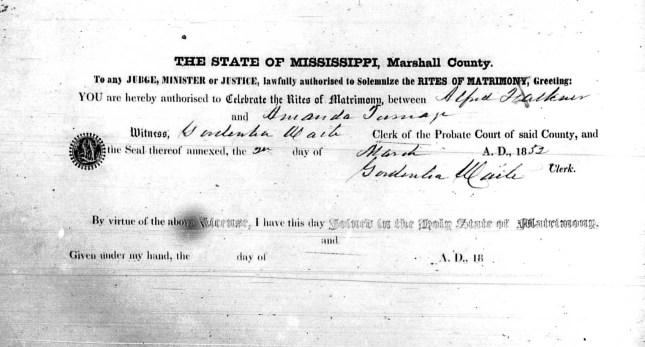 THE STATE OF MISSISSIPPI, Marshall County.
To any JUDGE, MINISTER or JUSTICE, lawfully authorised to Solemnize the RITES OF MATRIMONY, Greeting:
YOU are hereby authorised to Celebrate the Rites of Matrimony, between Alfred Falkner
and Amanda Turnage
Witness, Gordentia Waite Clerk of the Probate Court of said County, and
the Seal thereof annexed, the day of March A. D., 1852
Gordentia Waite Clerk.
By virtue of the above License, I have this day Joined in the Holy State of Matrimony,
and
Given under my hand, the day of A. D., 18